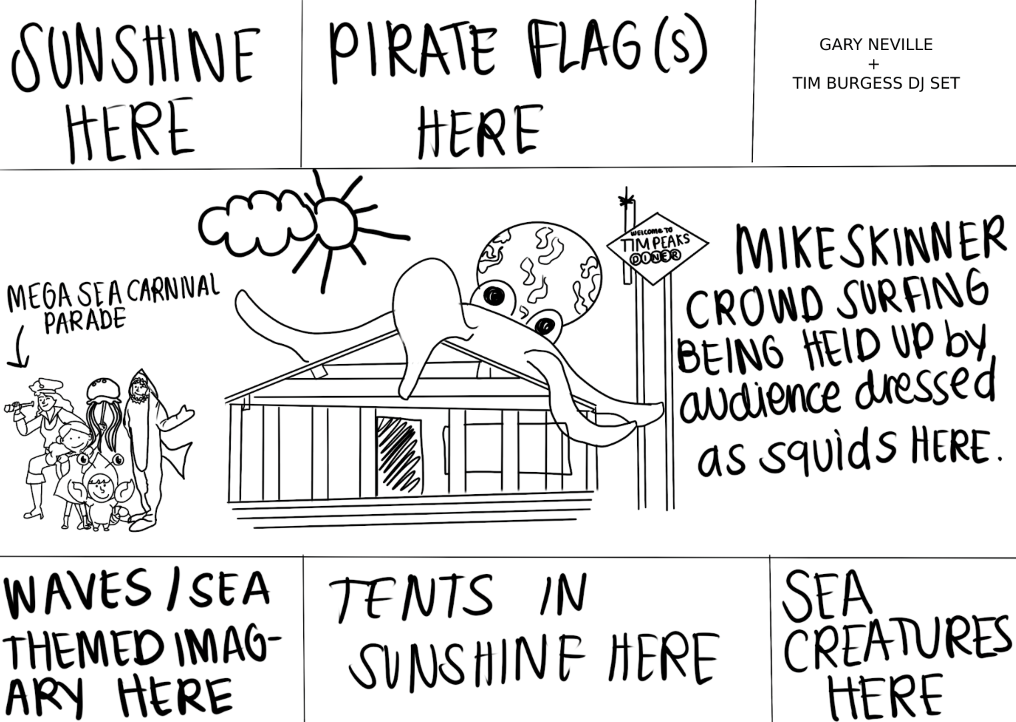 SUNSHINE
HERE
PIRATE FLAG(S)
HERE
GARY NEVILLE
+
TIM BURGESS DJ SET
MEGA SEA CARNIVAL
PARADE
WELCOME TO
TIM PEAKS
DINER
MIKE SKINNER
CROWD SURFING
BEING HElD UP by
audience dressed
as squids HERE.
WAVES / SEA
THEMED IMAG-
ARY HERE
TENTS IN
SUNSHINE HERE
SEA
CREATURES
HERE